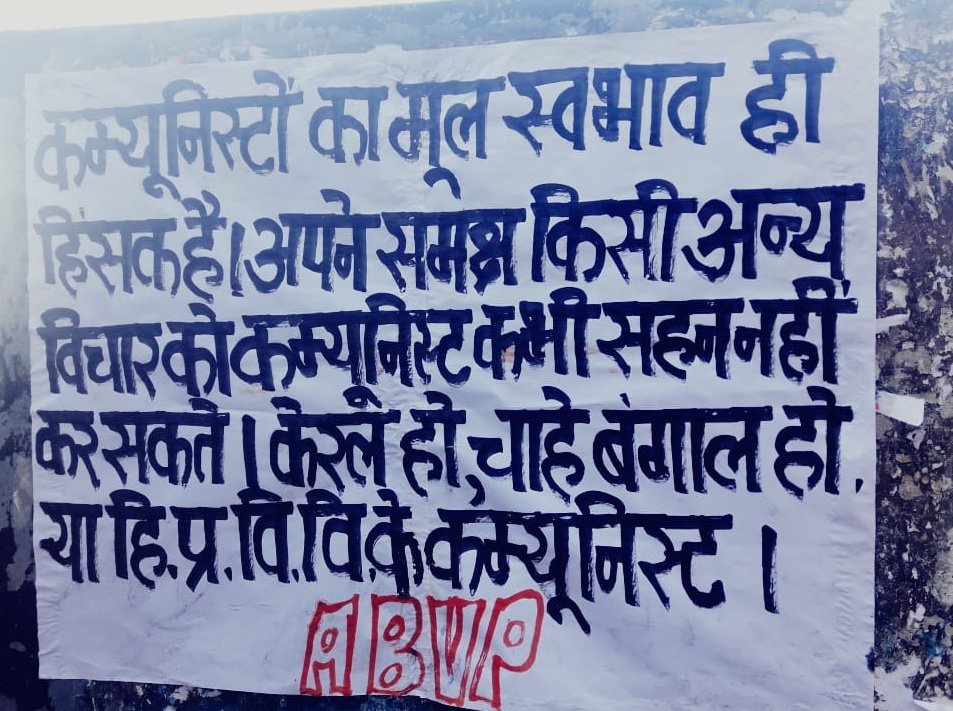 कम्यूनिस्टों का मूल स्वभाव ही
हिंसक है। अपने समक्ष किसी अन्य
विचार को कम्यूनिस्ट कभी सहन नहीं
कर सकते । केरल हो, चाहे बंगाल हो,
या हि.प्र. वि.वि. के कम्यूनिस्ट ।
ABVP